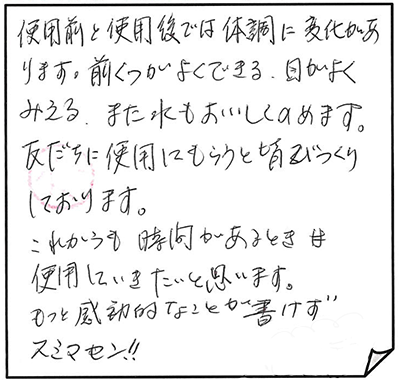 使用前と使用後では体調に変化があ
ります。前くつがよくできる、目がよく
みえる、また水もおいしくのめます。
友だちに使用してもらうと皆びっくり
しております。
これからも時間があるときは
使用していきたいと思います。
もっと感動的なことが書けず
スミマセン!!